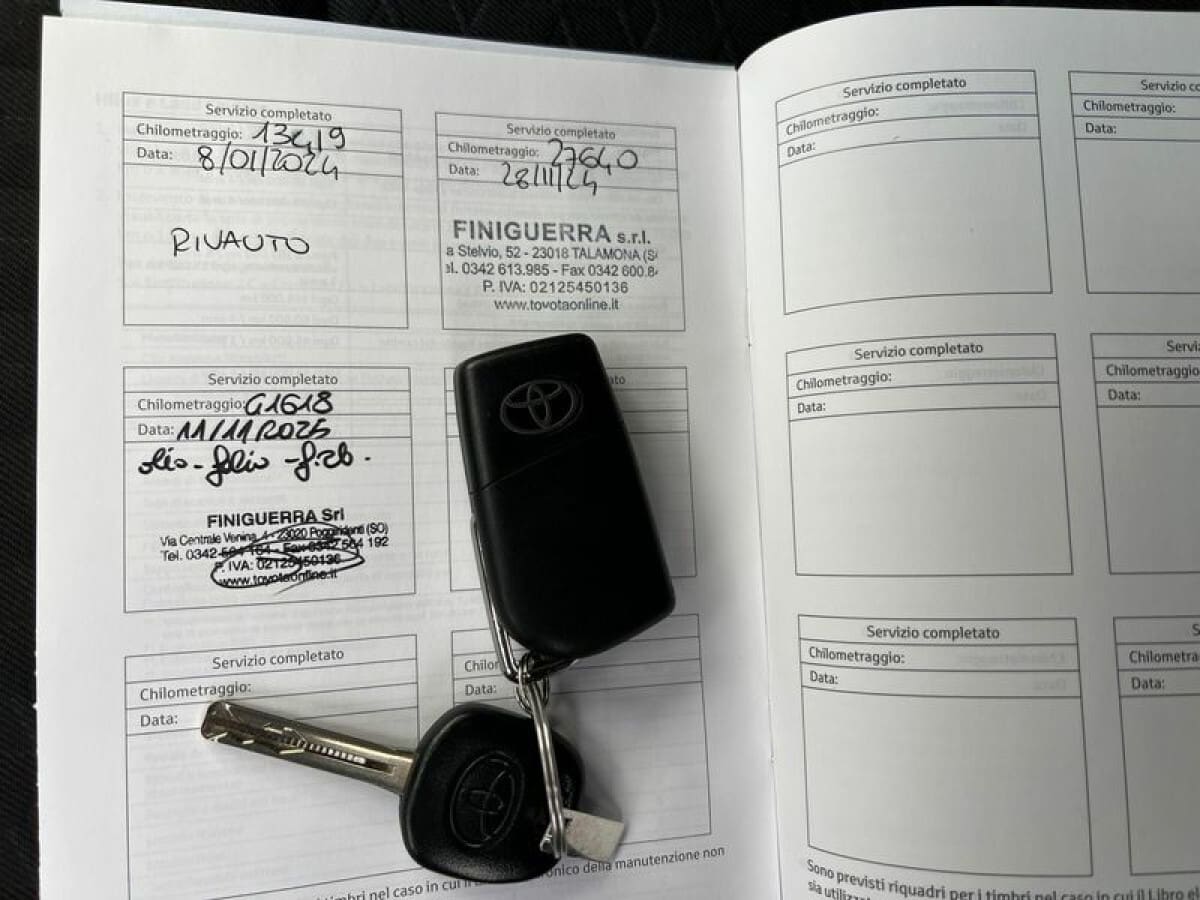 Servizio completato
Chilometraggio: 13419
Data: 8/01/2024
RIVAUTO
Servizio completato
Chilometraggio: 27640
Data: 28/11/24
FINIGUERRA s.r.l.
a Stelvio, 52 - 23018 TALAMONA (S
el. 0342 613.985 - Fax 0342 600.8
P. IVA: 02125450136
www.toyotaonline.it
Servizio completato
Chilometraggio: 41618
Data: 11/11/2025
olio - folio -
FINIGUERRA Srl
Via Centrale Venina, 4 - 23020 Poggiridenti (SO)
Tel. 0342 564 164 - Fax 0342 564 192
P. IVA: 02125450136
www.toyotaonline.it
Servizio completato
Chilometraggio:
Data:
Chilo
Data:
timbri nel caso in cui il
onico della manutenzione non
Servizio completato
Chilometraggio:
Data:
Servizio co
Chilometraggio:
Data:
Servizio completato
Chilometraggio:
Data:
Servi
Chilometraggio
Data:
Servizio completato
Chilometraggio:
Data:
S
Chilometra
Data:
Sono previsti riquadri per i timbri nel caso in cui il Libro el
sia utilizz